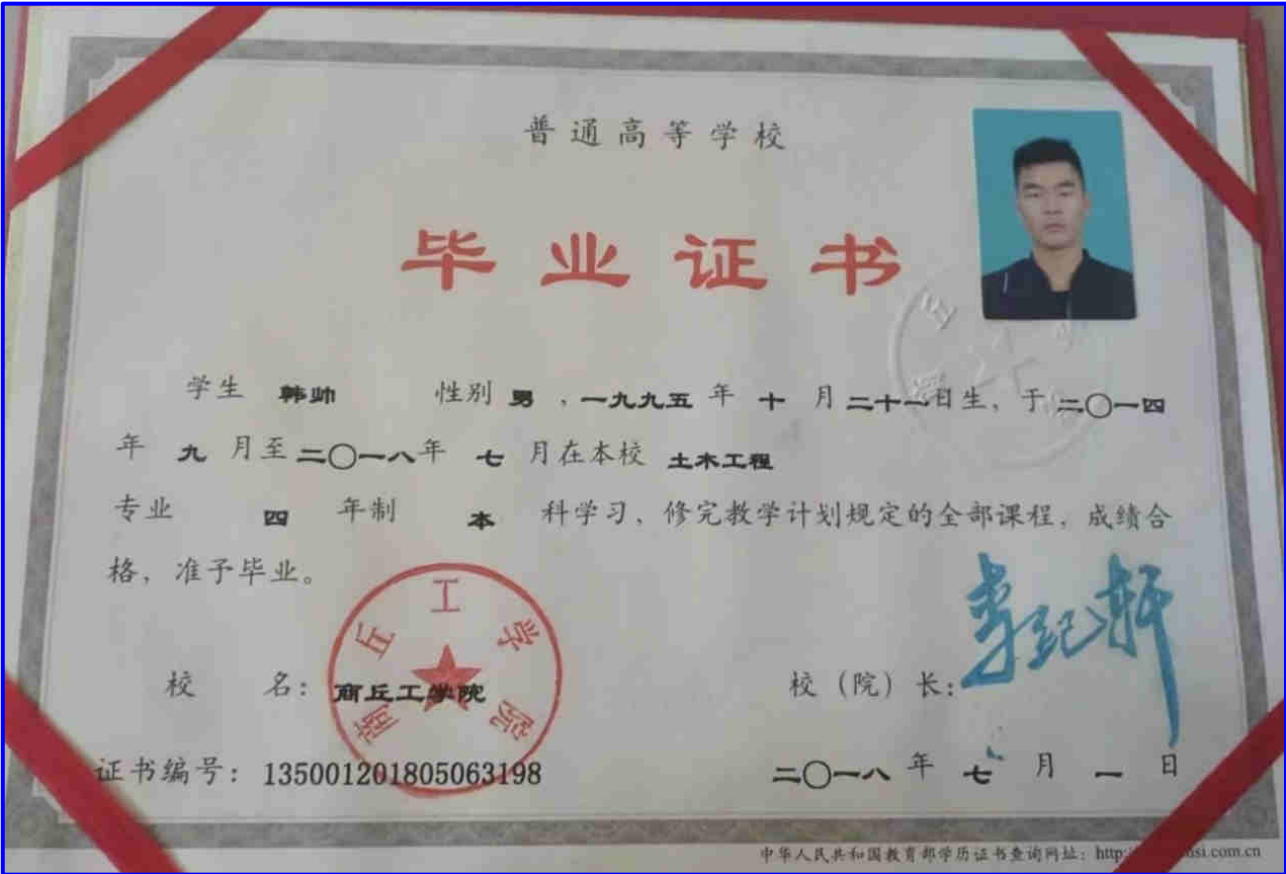 普通高等学校
毕业证书
学生 韩帅 性别 男 ，一九九五 年 十 月 二十一日生，于 二〇一四
年 九 月至 二〇一八年 七 月在本校 土木工程
专业 四 年制 本 科学习，修完教学计划规定的全部课程，成绩合
格，准予毕业。
商丘工学院
校 名：商丘工学院 校（院）长：李纪轩
证书编号：135001201805063198 二〇一八 年 七 月 一 日
中华人民共和国教育部学历证书查询网址：http:si.com.cn